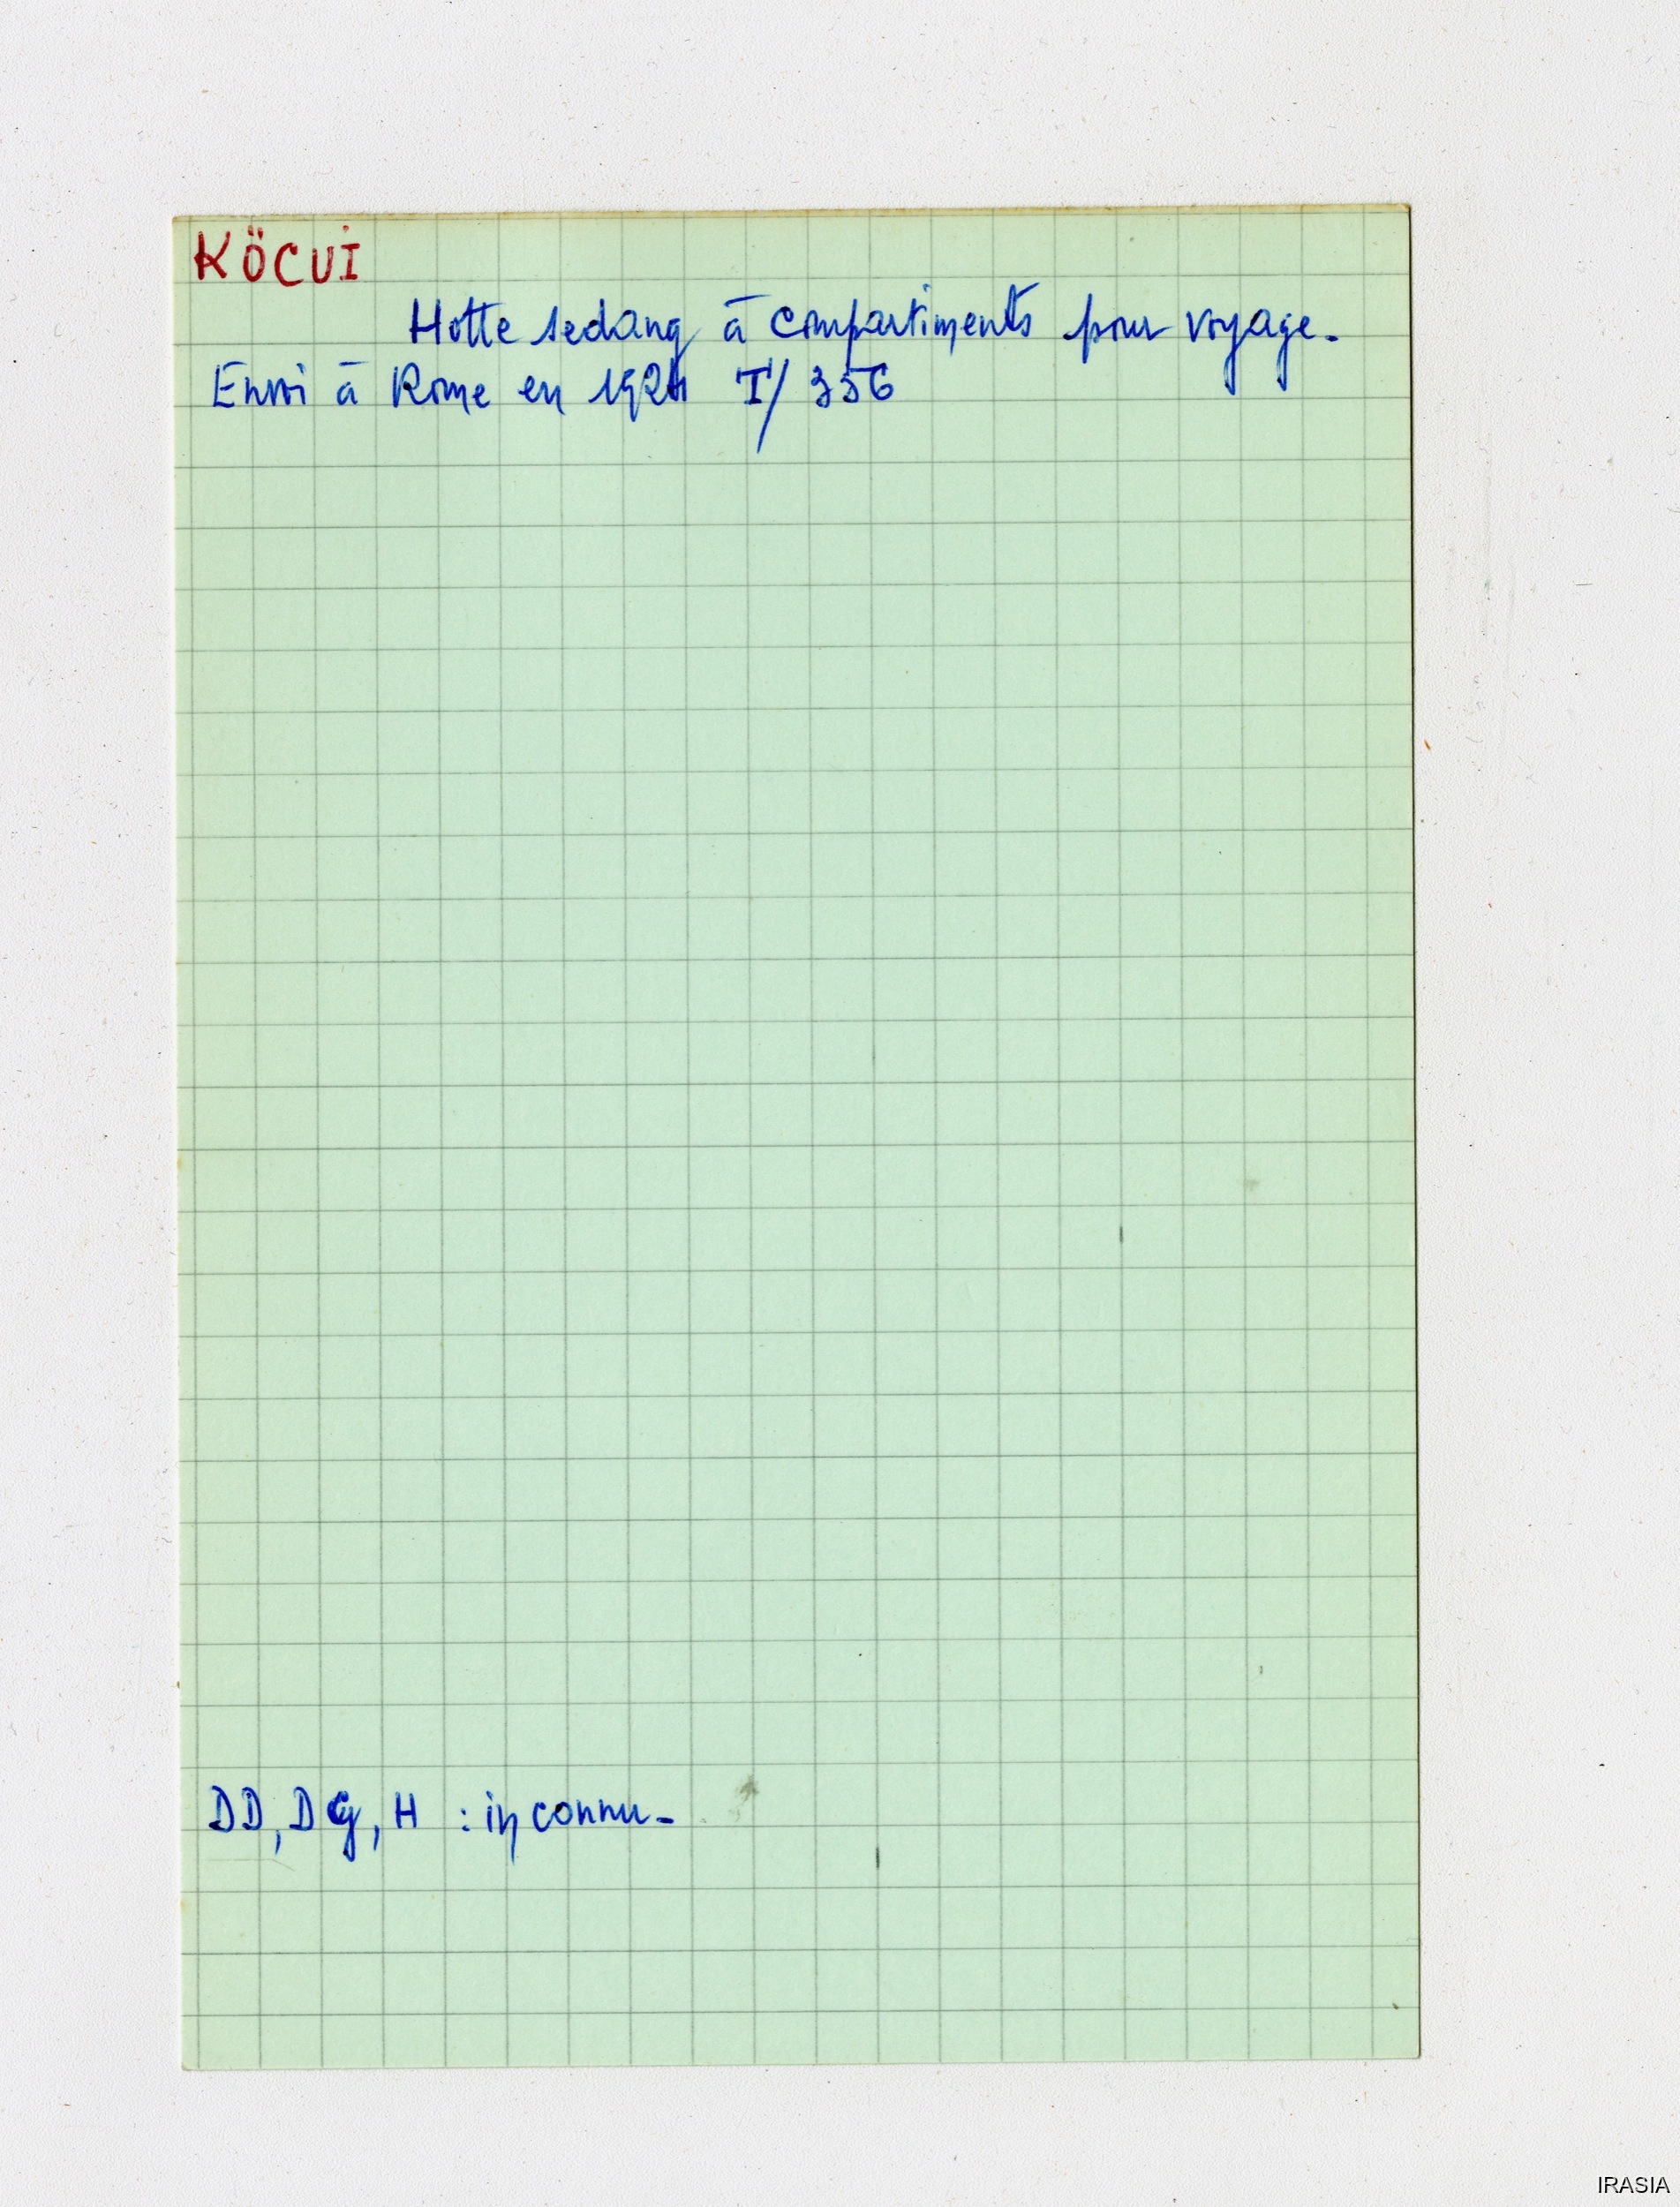 KÖCUI
Hotte sedang à compartiments pour voyage.
Envoi à Rome en 1924 I/356
DD, DG, H : inconnu.
IRASIA